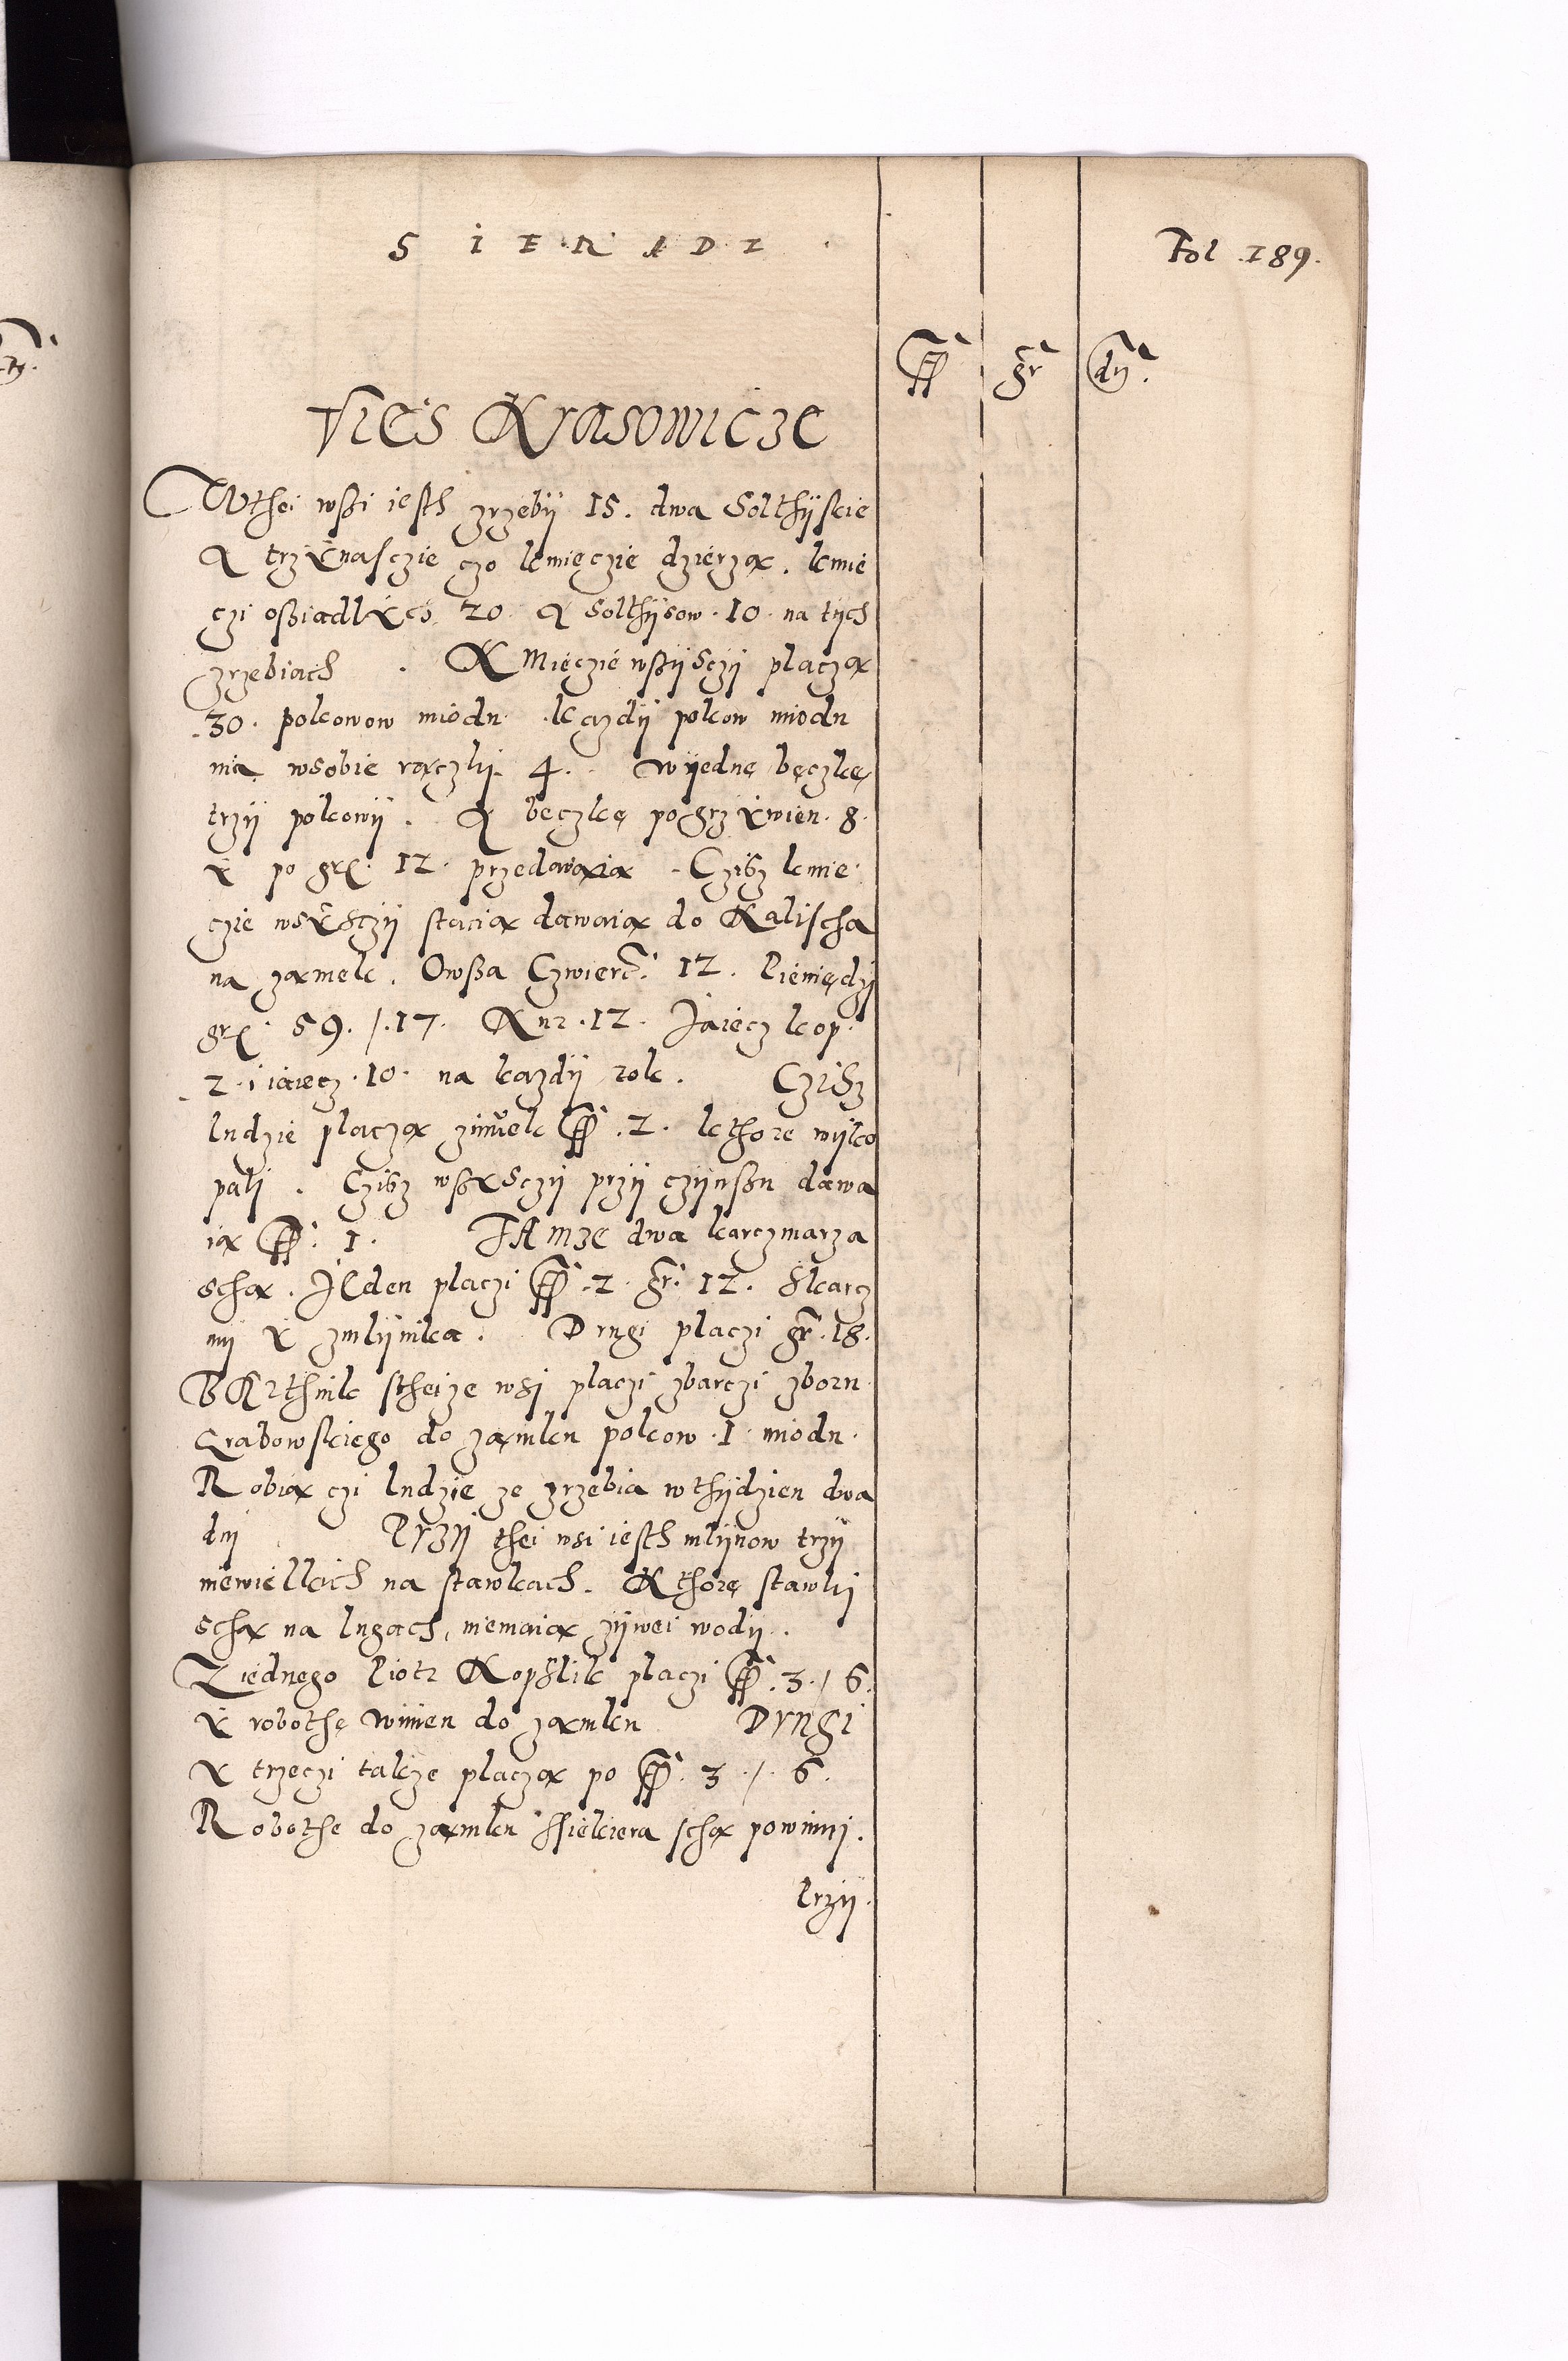 SIERADZ
Fol .189.
ff gr dn.
VIes Krasowicze
Wthei wßi iesth zrzebÿ 15. dwa Solthÿskie
A trzÿnasczie czo kmieczie dzierzą. kmie
czi oßiadlÿch 20. A Solthÿsow .10. na tÿch
zrzebiach . KMieczie wßÿsczÿ placzą
.30. polkowow miodu. kazdÿ polkow miodu
ma wsobie rączki 4. . Wÿednę beczkę
trzÿ polkowÿ . A beczkę po grzÿwien .8.
ÿ po grꝭ. 12. przedawaią . Czisz kmie
czie wsÿsczÿ stacią dawaią do Kalischa
na zamek. Owßa Czwierc. 12. Pieniędzÿ
grꝭ. 59. /.17. Kur .12. Jaiecz kop.
.2. i iaiecz .10. na kazdÿ rok. Czisz
ludzie placzą zimek ff .2. kthore wÿko
pali . Czisz wßÿsczÿ przÿ czÿnßu dawa
ią ff. 1. TAmze dwa karczmarza
schą. JEden placzi ff .2. gr. 12. Skarcz
mÿ ÿ zmlÿnika. Drugi placzi gr .18.
BArthnik stheize wsi placzi zbarczi zboru
Grabowskiego do zamku polkow .1. miodu.
Robią czi ludzie ze zrzebia wthÿdzien dwa
dni Przÿ thei wsi iesth mlÿnow trzÿ
niewielkich na stawkach. Kthorę stawki
schą na lugach, niemaią zÿwei wodÿ..
Ziednego Piotr Kopslik placzi ff .3. / 6.
ÿ robothę Winien do zamku Drugi
ÿ trzeczi takze placzą po ff. 3 ./. 6.
Robothe do zamku Ssiekiera schą powinni.
Przÿ.